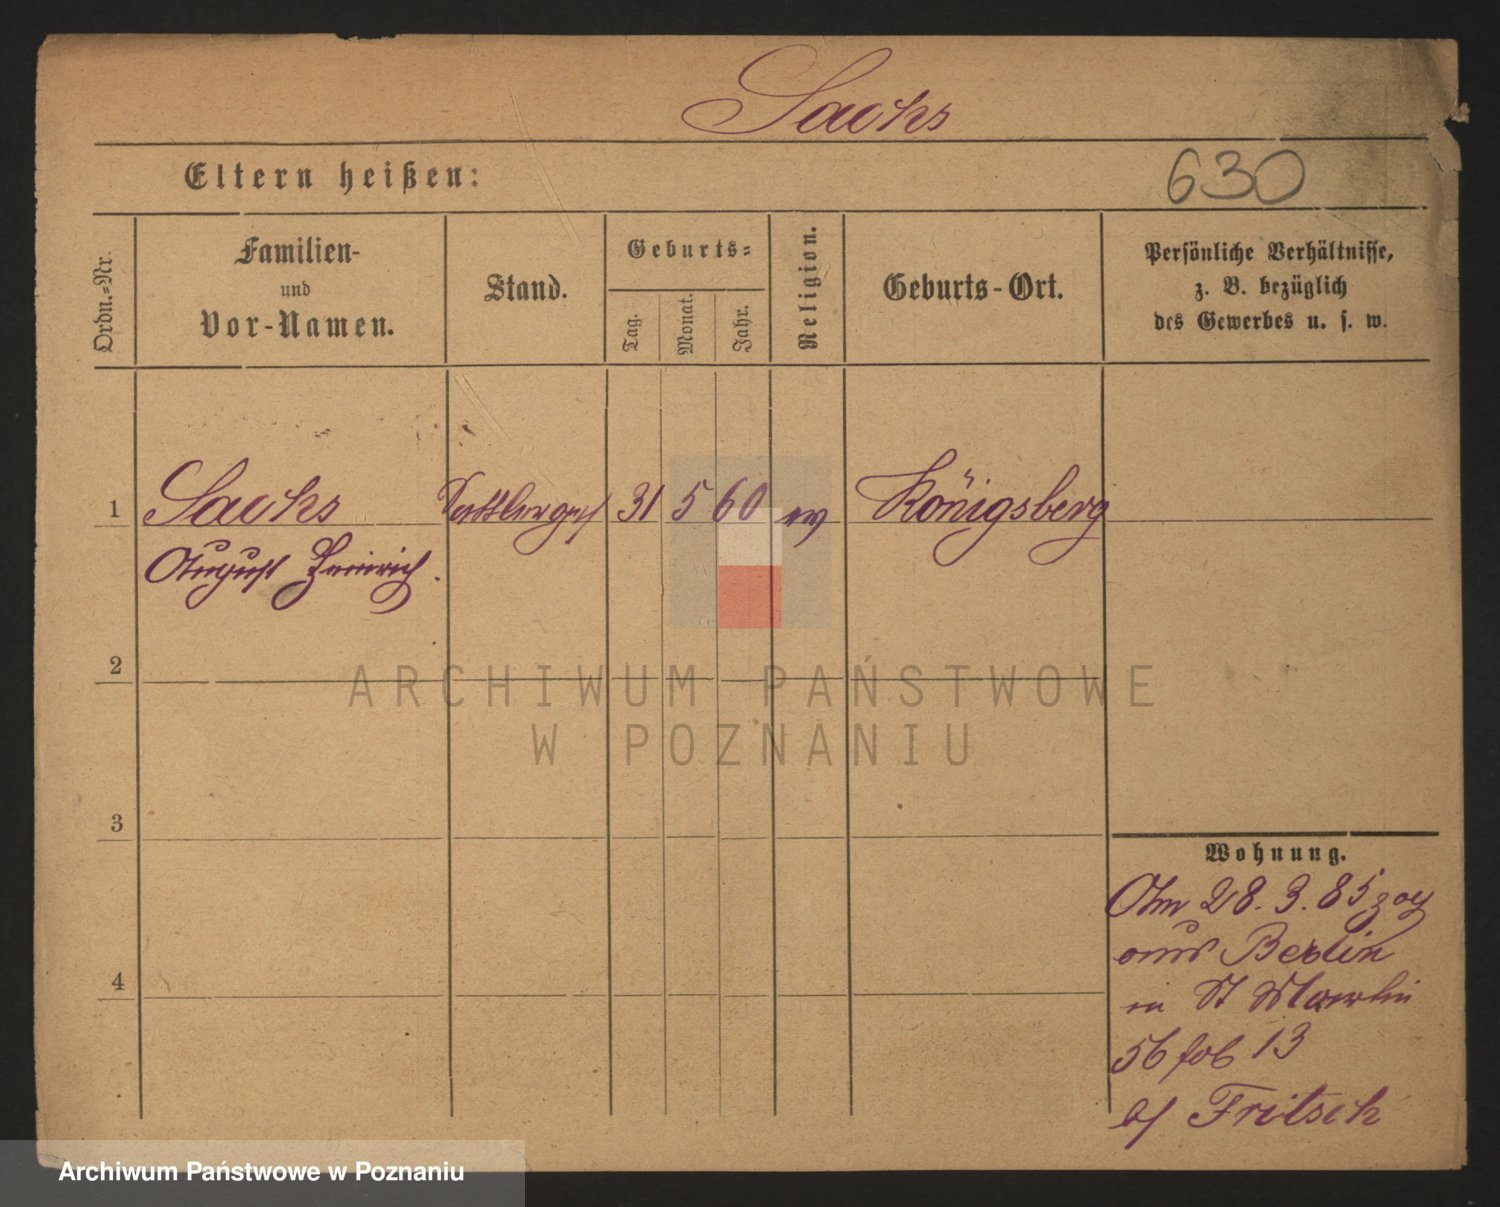 Sachs
Eltern heißen:
630
Ordn.-Nr.
Familien-
und
Vor-Namen.
Stand.
Geburts-
Tag.
Monat.
Jahr.
Religion.
Geburts-Ort.
Persönliche Verhältnisse,
z. B. bezüglich
des Gewerbes u. s. w.
1 Sachs Sattlerges 31 5 60 ev Königsberg
August Heinrich.
2
ARCHIWUM PAŃSTWOWE
W POZNANIU
3
Wohnung.
Am 28. 3. 85 zog
aus Berlin
4
in St Martin
56 13
b/ Fritsch
Archiwum Państwowe w Poznaniu